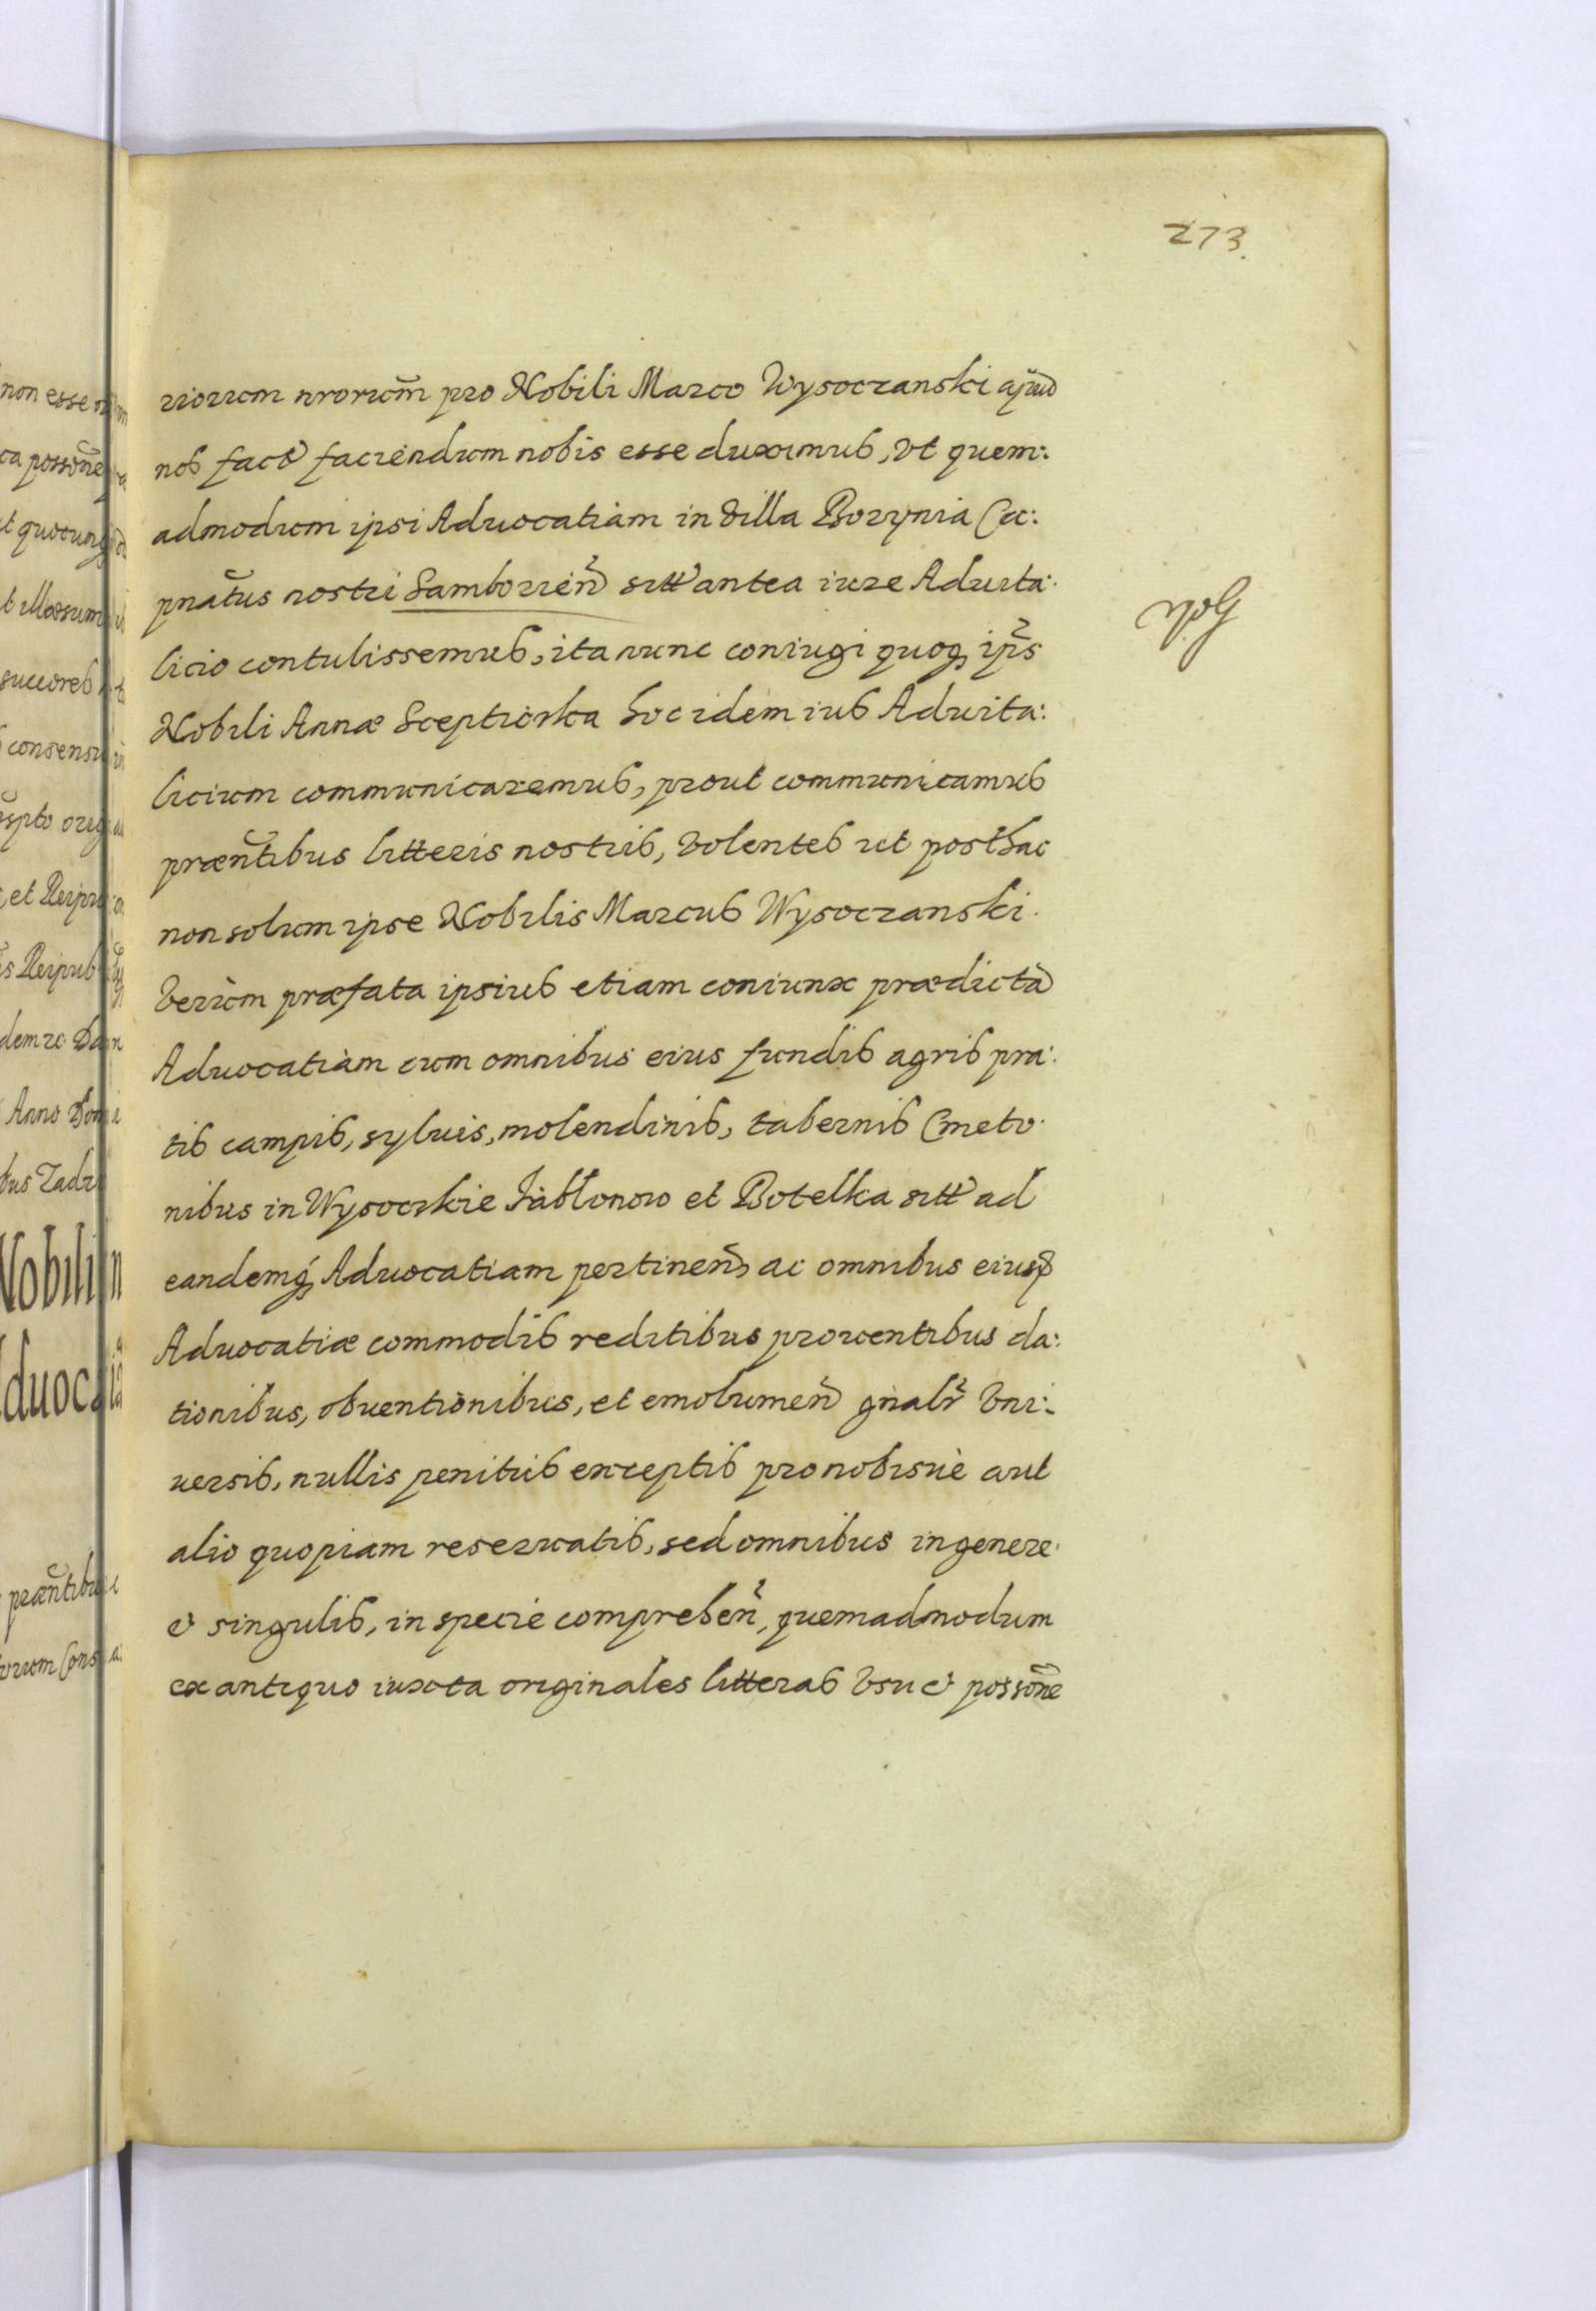 273.
riorum nrorum̃ pro Nobili Marco Wysoczanski apud
nos fact faciendum nobis esse duximus, Vt quem:
admodum ipsi Aduocatiam in Villa Borynia Ca:
pnatũs nostri Samborien̄ sitt antea iure Aduita:
licio contulissemus, ita nunc coniugi quoq ip̃s
Nobili Annæ Scepticska hoc idem ius Aduita:
licium communicaremus, prout communicamus
præñtibus litteris nostris, Volentes ut posthac
non solum ipse Nobilis Marcus Wysoczanski
Verùm præfata ipsius etiam coniunx prædictã
Aduocatiam cum omnibus eius fundis agris pra:
tis campis, syluis, molendinis, tabernis Cmeto
nibus in Wysockie Jabłonow et Botelka sitt ad
eandemq́ Aduocatiam pertinen̄, ac omnibus eiusd
Aduocatiæ commodis reditibus prouentibus da:
tionibus, obuentionibus, et emolumen̄ gñalr̃ Vni:
uersis, nullis penitus exceptis pro nobisue aut
alio quopiam reseruatis, sed omnibus in genere
et singulis, in specie comprehen̄, quemadmodum
ex antiquo iuxta originales litteras Vsu et possõne